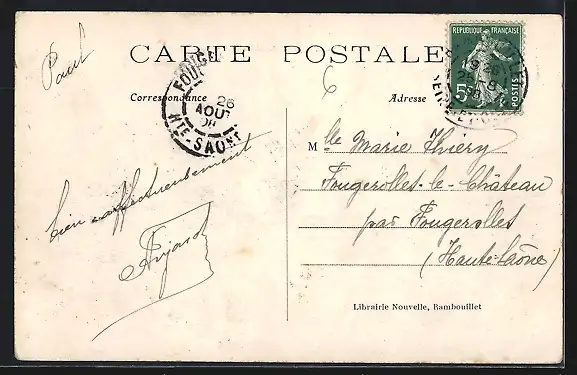 Paul
CARTE POSTALE
Correspondance
Adresse
REPUBLIQUE FRANÇAISE
5c
POSTES
FOUGE
26
AOUT
08
HTE-SAONE
6
Mlle Marie Thiery
Fougerolles-le-Château
par Fougerolles
(Haute-Saône)
bien affectueusement
Librairie Nouvelle, Rambouillet